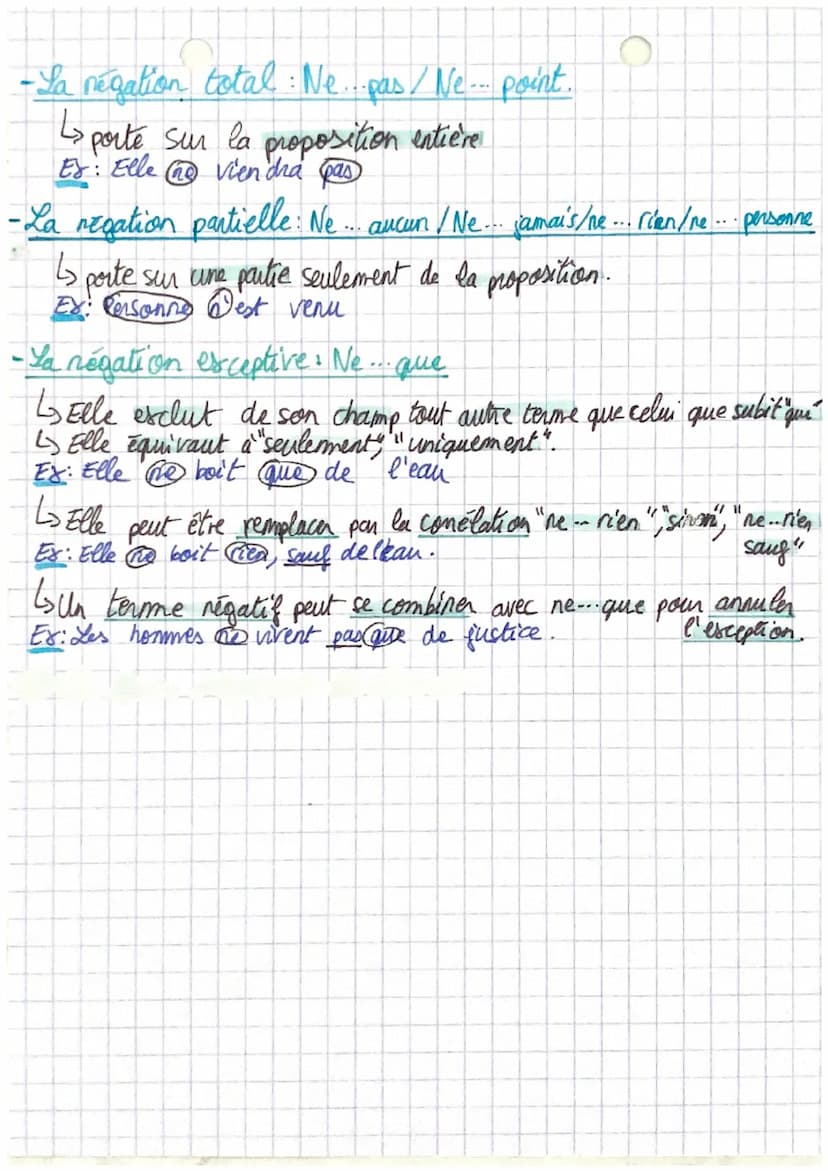 - La négation total : Ne...pas / Ne... point.
↳ porte sur la proposition entière
Ex : Elle ne viendra pas
- La négation partielle : Ne... aucun / Ne... jamais/ne... rien/ne... personne
↳ porte sur une partie seulement de la proposition.
Ex : Personne n'est venu
- La négation exceptive : Ne...que
↳ Elle exclut de son champ tout autre terme que celui que subit "que"
↳ Elle équivaut à "seulement", "uniquement".
Ex : Elle ne boit que de l'eau
↳ Elle peut être remplacer par la corrélation "ne -- rien", "sinon", "ne..rien
sauf"
Ex : Elle ne boit rien, sauf de l'eau.
↳ Un terme négatif peut se combiner avec ne---que pour annuler
l'exception.
Ex : Les hommes ne vivent pas que de justice.